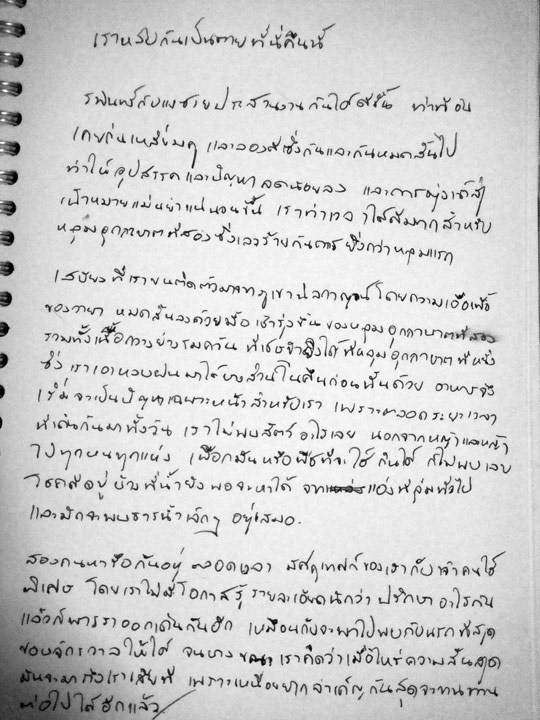 เราหลับกันเป็นตายที่นี่คืนนี้
รพินทร์กับแงซายประสานงานกันได้ดีขึ้น ท่าที่อ่อน
เคยกันเหลี่ยมคู และลองดีซึ่งกันและกันหมดสิ้นไป
ทำให้อุปสรรคและปัญหาลดน้อยลง และการมุ่งเข้าสู่
เป้าหมายแม่นยำแน่นอนขึ้น เราทำเวลาได้ดีมากสำหรับ
หลุมอุกกาบาตที่สองซึ่งเลวร้ายกันดารยิ่งกว่าหลุมแรก
เสบียงที่เราขนติดตัวมาจากภูเขา โดยความเอื้อเฟื้อ
ของวายา หมดสิ้นลงด้วยมื้อเช้ารุ่งขึ้นของหลุมอุกกาบาตที่สอง
รวมทั้งเนื้อกวางย่างรมควัน ที่เชษฐายิงได้ที่หลุมอุกกาบาตที่หนึ่ง
ซึ่งเราเอาหลบฝนมาได้บางส่วนในคืนก่อนนั้นด้วย อาหารจึง
เริ่มจะเป็นปัญหาเฉพาะหน้าสำหรับเรา เพราะตลอดระยะเวลา
ที่เดินกันมาทั้งวัน เราไม่พบสัตว์อะไรเลย นอกจากหญ้าและหญ้า
ไปทุกหนทุกแห่ง เผือกมันหรือพืชที่จะใช้กินได้ ก็ไม่พบเลย
โชคดีอยู่บ้างที่น้ำยังพอจะหาได้ จากแอ่งที่ลุ่มทั่วไป
และมักจะพบธารน้ำเล็กๆ อยู่เสมอ.
สองคนหารือกันอยู่ตลอดเวลา มัคคุเทศก์ของเรากับเจ้าคนใช้
พิเศษ โดยเราไม่มีโอกาสรู้รายละเอียดนักว่า ปรึกษาอะไรกัน
แล้วก็พาเราออกเดินกันอีก เหมือนกับจะพาไปพบก้นนรกที่สุด
ของจักรวาลให้ได้ จนบางขณะเราคิดว่าเมื่อไหร่ความสิ้นสุด
มันจะมาถึงเราเสียที เพราะเหนื่อยยากลำเค็ญกันสุดจะทนทาน
ต่อไปได้อีกแล้ว